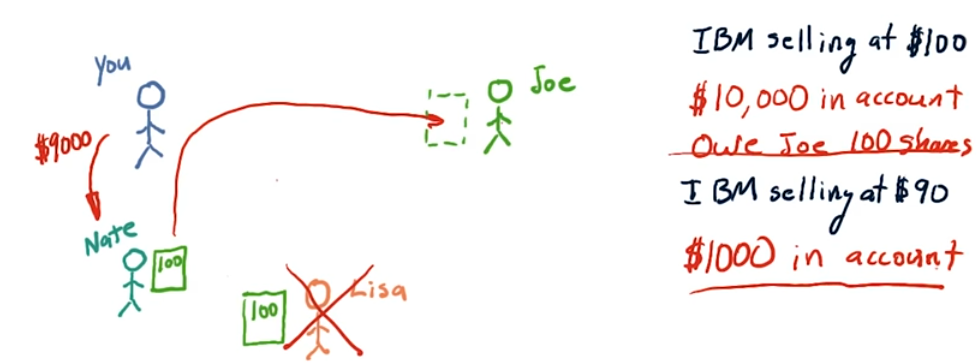 You
Joe
$9000
Nate
100
100
Lisa
IBM selling at $100
$10,000 in account
Owe Joe 100 shares
IBM selling at $90
$1000 in account